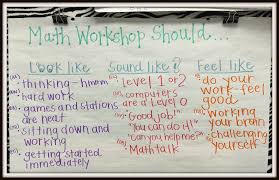 Math Workshop Should...
Look like
thinking-hmmm
hard work
games and stations
are neat
sitting down and
working
getting started
immediately
Sound like?
level 1 or 2
computers
are a level 0
"Good job!"
"You can do it!"
"Can you help me?"
Math talk
Feel like
do your
work-feel
good
working
your brain
challenging
yourself